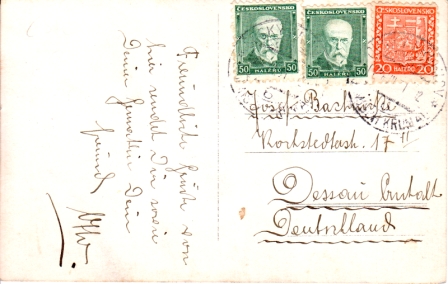 ČESKOSLOVENSKO
50 HALÉŘŮ 50
ČESKOSLOVENSKO
50 HALÉŘŮ 50
ČESKOSLOVENSKO
20 HALÉŘŮ 20
Freundliche Grüße von
hier sendet Dir sowie
Deiner Gemahlin Dein
Freund
Otto
Josef
17 II
Dessau Anhalt
Deutschland